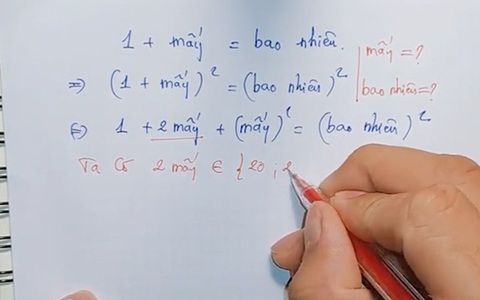 1 + mấy = bao nhiêu.
mấy = ?
⇒ (1 + mấy)² = (bao nhiêu)²
bao nhiêu = ?
⇔ 1 + 2 mấy + (mấy)² = (bao nhiêu)²
Ta có 2 mấy ∈ {20 ; 2